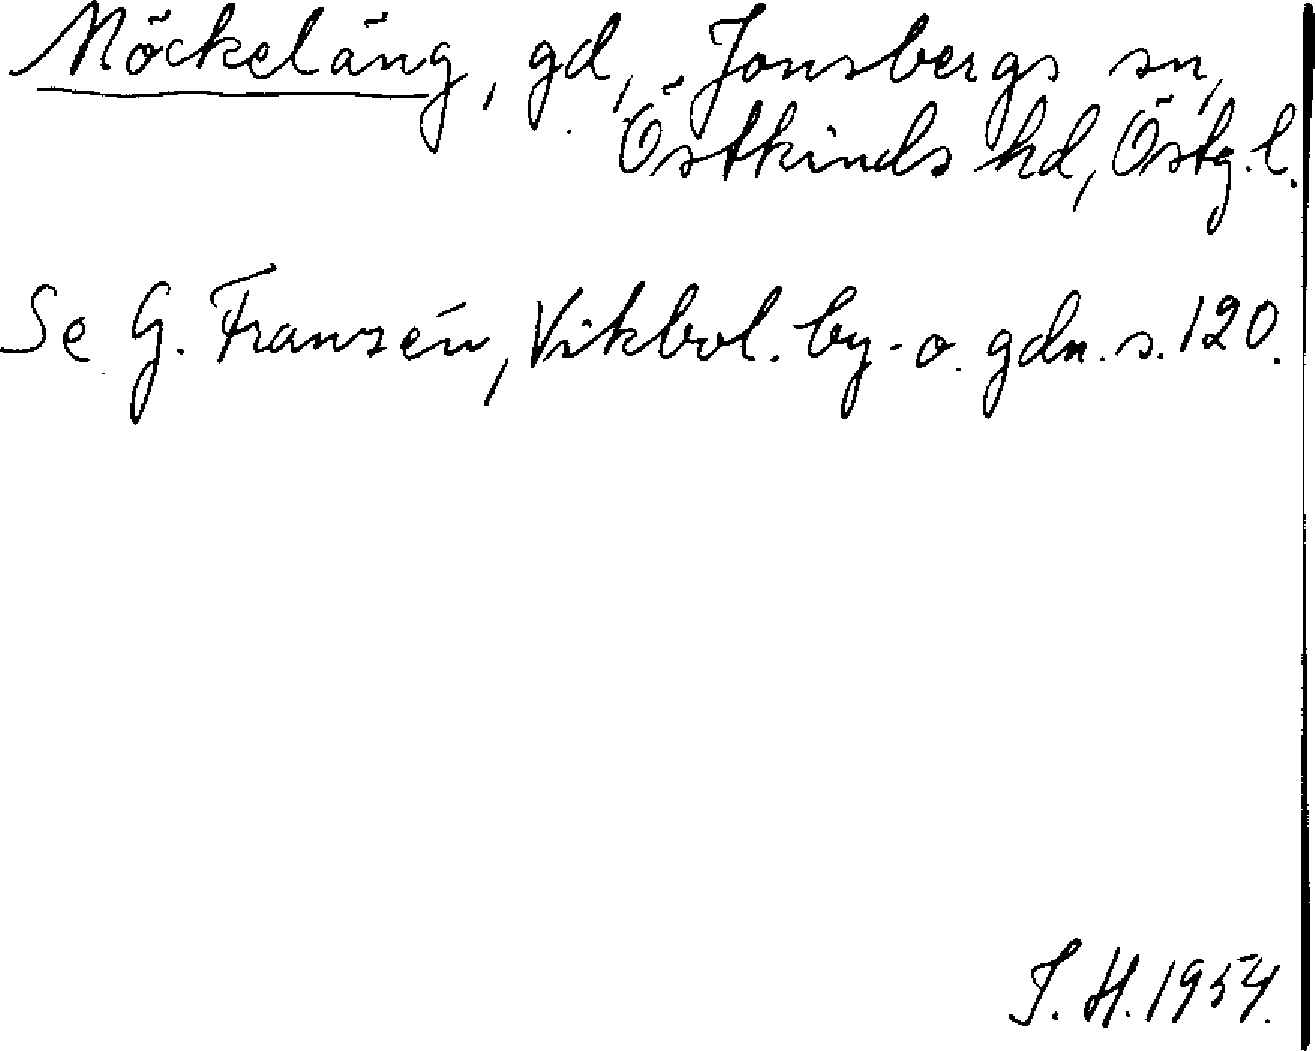 Möckeläng, gd, Jonsbergs sn,
Östkinds hd, Östg. l.
Se G. Franzén, Vikbol. by- o. gdn. s. 120.
I. H. 1954.